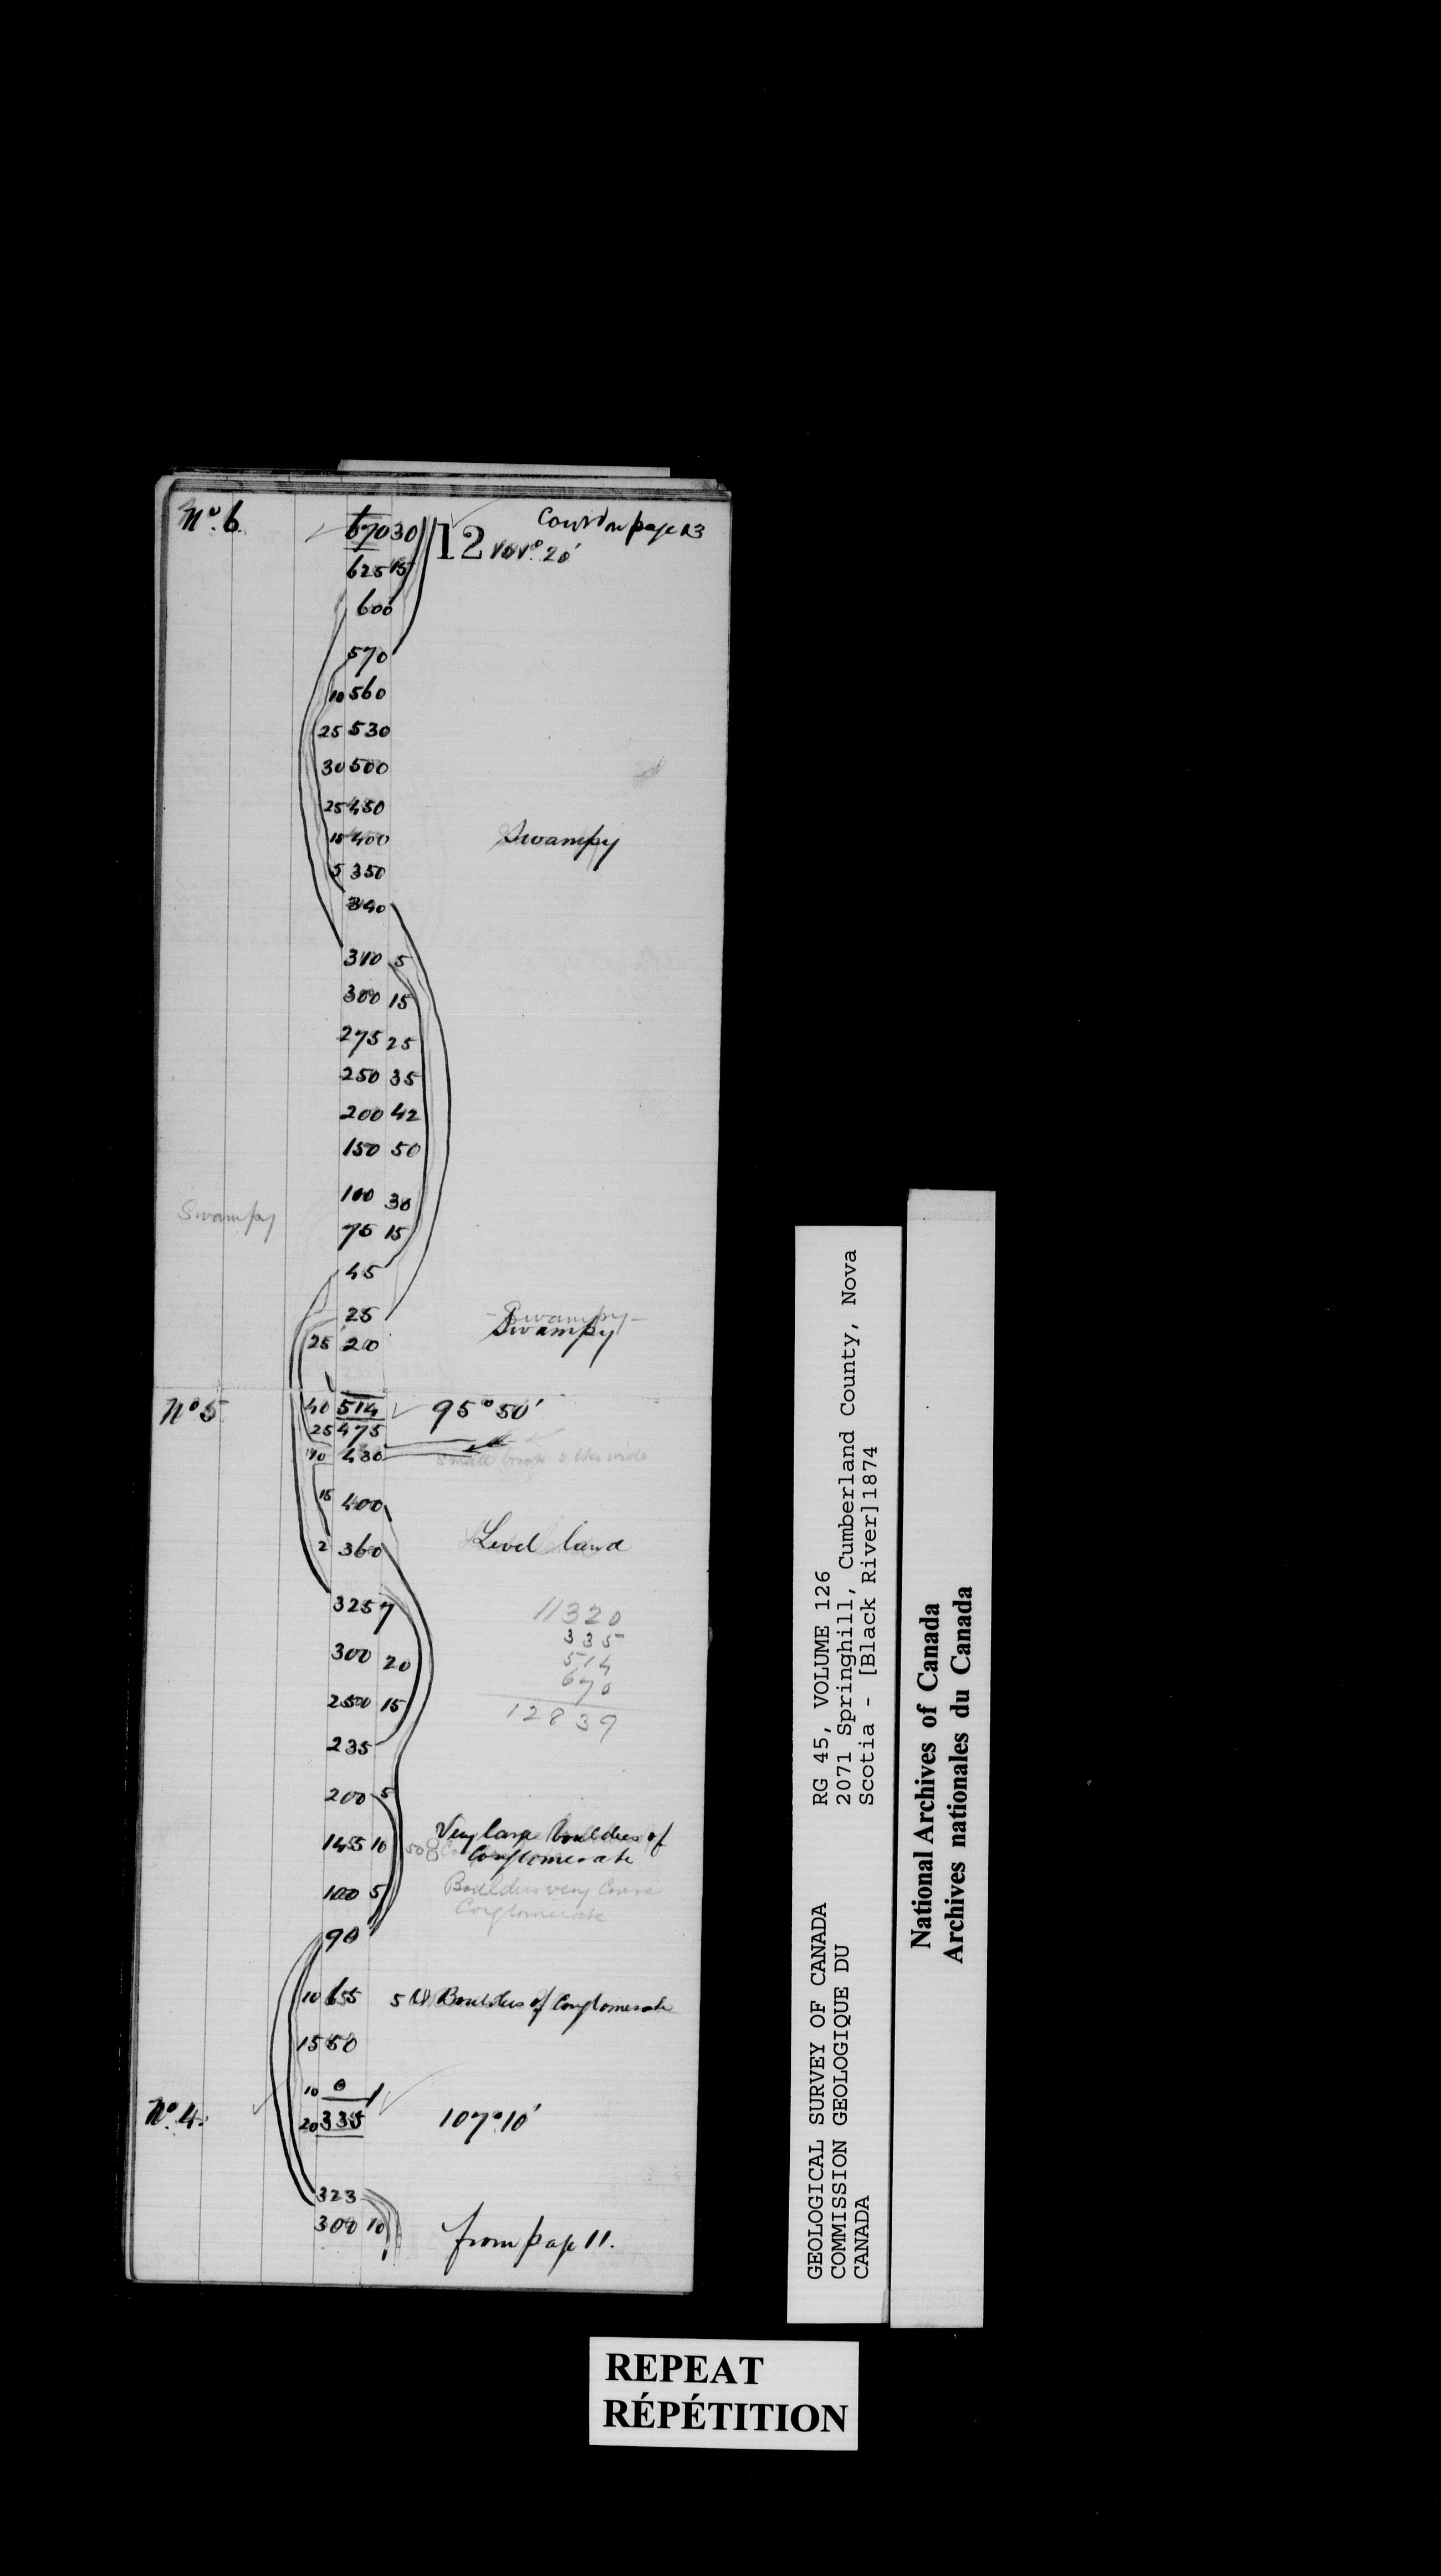 No. 6 670 30 12 Cont'd on page 13
20'
625 15
600
570
10 560
25 530
30 500
25 450
15 400 Swampy
5 350
340
310 5
300 15
275 25
250 35
200 42
150 50
100 30
Swampy
75 15
45
25 Swampy
25 20 Swampy
No 5 40 514 95° 50'
25 475
430 small brook 2 lks wide
15 400
2 360 Level land
325 7
11320
335
300 20 514
670
250 15 12839
235
200 5
Very large boulders of
10 Conglomerate
100 5 Boulders very Coarse
Conglomerate
90
10 Boulders of Conglomerate
15 50
10 0
No. 4. 20 335 107° 10'
323
300 10 from page 11.
GEOLOGICAL SURVEY OF CANADA RG 45, VOLUME 126
COMMISSION GEOLOGIQUE DU 2071 Springhill, Cumberland County, Nova
CANADA Scotia - [Black River]1874
National Archives of Canada
Archives nationales du Canada
REPEAT
RÉPÉTITION